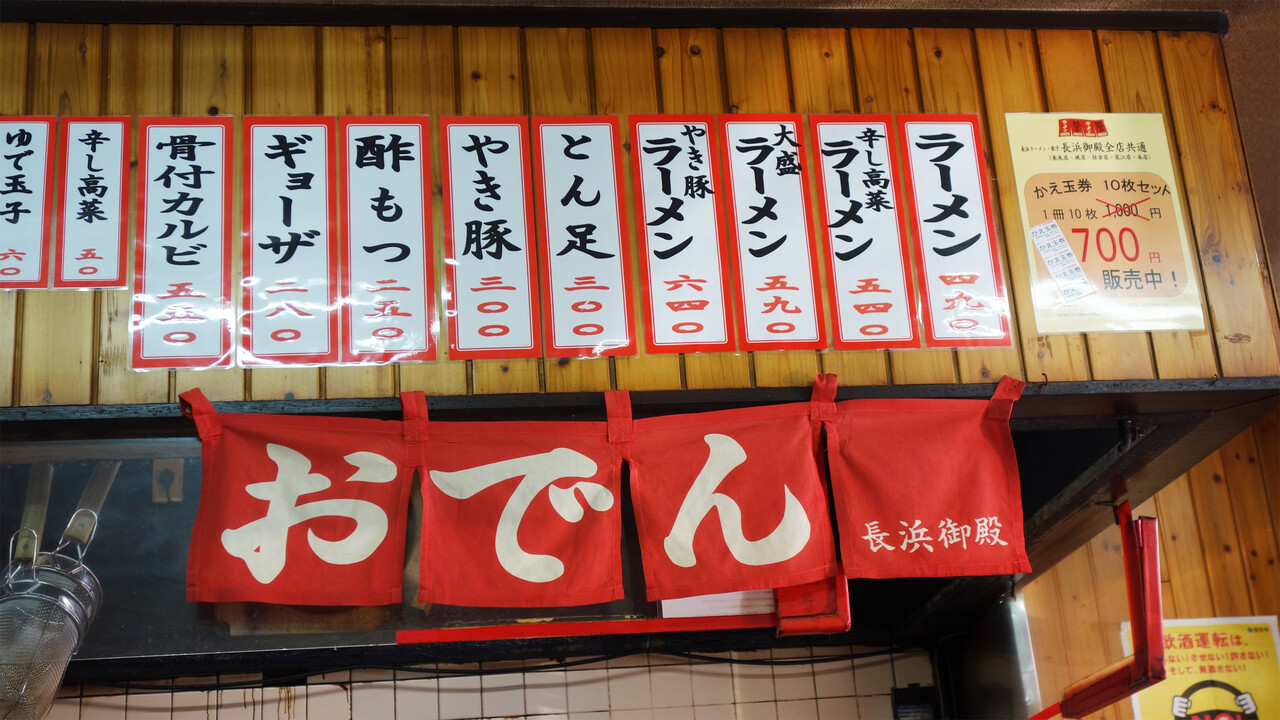 ラーメン
四九〇
辛し高菜
ラーメン
五四〇
大盛
ラーメン
五九〇
やき豚
ラーメン
六四〇
とん足
三〇〇
やき豚
三〇〇
酢もつ
二五〇
ギョーザ
二八〇
骨付カルビ
五五〇
辛し高菜
五〇
ゆで玉子
六〇
長浜御殿全店共通
かえ玉券 10枚セット
1冊10枚 1,000円
700円
販売中!
かえ玉券
かえ玉券
かえ玉券
おでん
長浜御殿
飲酒運転は、
そして、見逃さない!